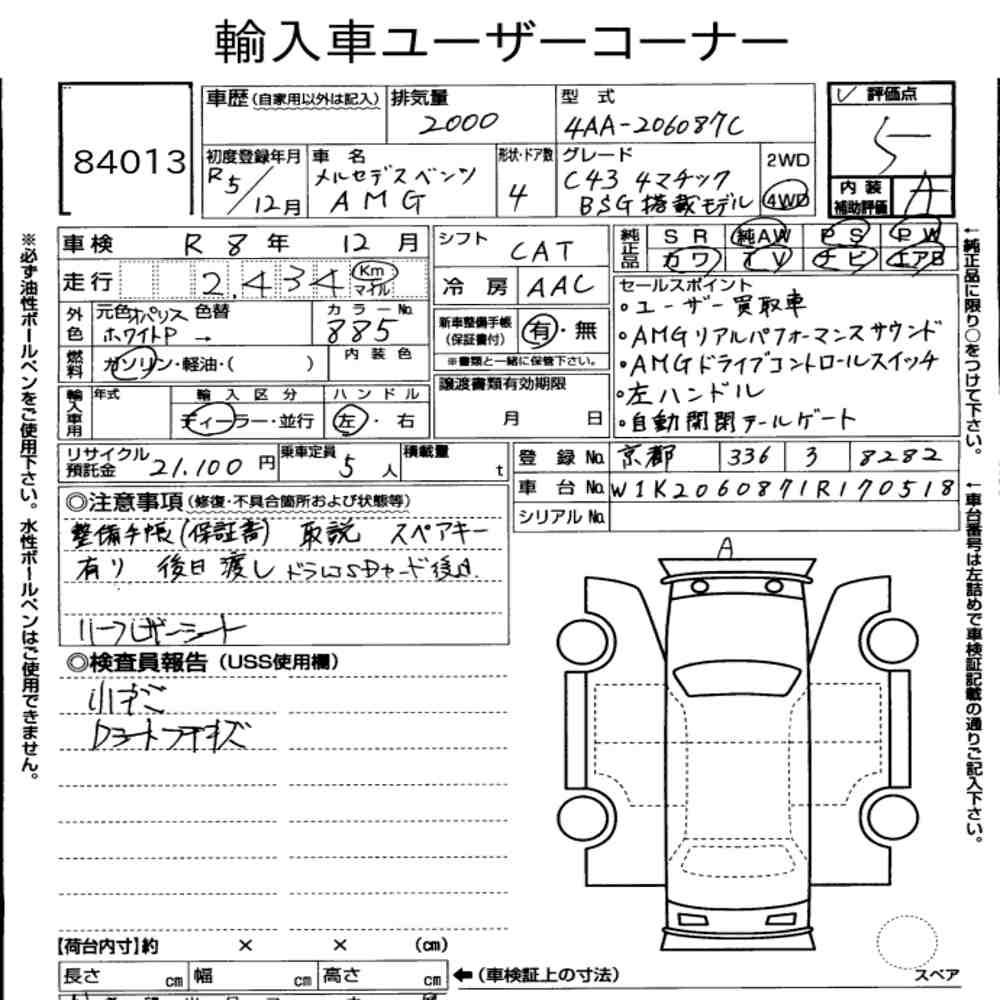 輸入車ユーザーコーナー
84013
車歴(自家用以外は記入) 排気量 2000 型式 4AA-206087C
✓ 評価点 5
初度登録年月 R5/12月 車名 メルセデスベンツ AMG 形状・ドア数 4 グレード C43 4マチック BSG搭載モデル 2WD 4WD
内装補助評価 A
車検 R 8年 12月 シフト CAT 純正品 SR 純AW PS PW
カワ TV ナビ エアB
走行 2,434 Km マイル 冷房 AAC
セールスポイント
・ユーザー買取車
・AMGリアルパフォーマンスサウンド
・AMGドライブコントロールスイッチ
・左ハンドル
・自動開閉テールゲート
外色 元色 オパリスホワイトP → 色替 カラーNo. 885
新車整備手帳(保証書付) 有・無
※書類と一緒に保管下さい。
燃料 ガソリン・軽油・( ) 内装色
譲渡書類有効期限 月 日
輸入車用 年式 輸入区分 ディーラー・並行 ハンドル 左・右
リサイクル預託金 21,100円 乗車定員 5人 積載量 t
登録No. 京都 336 3 8282
車台No. W1K2060871R170518
シリアルNo.
◎注意事項(修復・不具合箇所および状態等)
整備手帳(保証書) 取説 スペアキー
有り 後日渡し ドラレコSDカード後日.
ハーフレザーシート
◎検査員報告(USS使用欄)
小キズ
A
【荷台内寸】約 × × (cm)
長さ cm 幅 cm 高さ cm ←(車検証上の寸法)
スペア
※必ず油性ボールペンをご使用下さい。水性ボールペンはご使用できません。
←純正品に限り○をつけて下さい。
←車台番号は左詰めで車検証記載の通りご記入下さい。